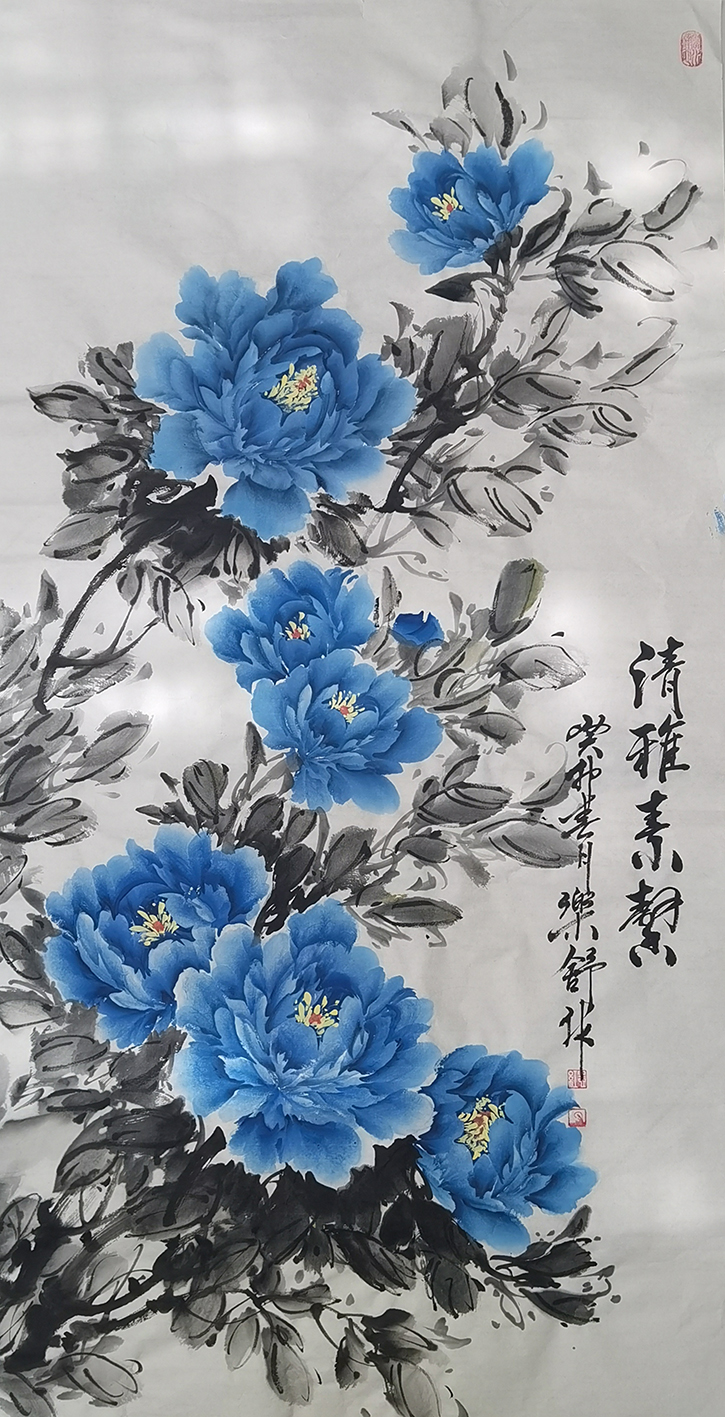 清雅素馨
癸卯春月樂舒作